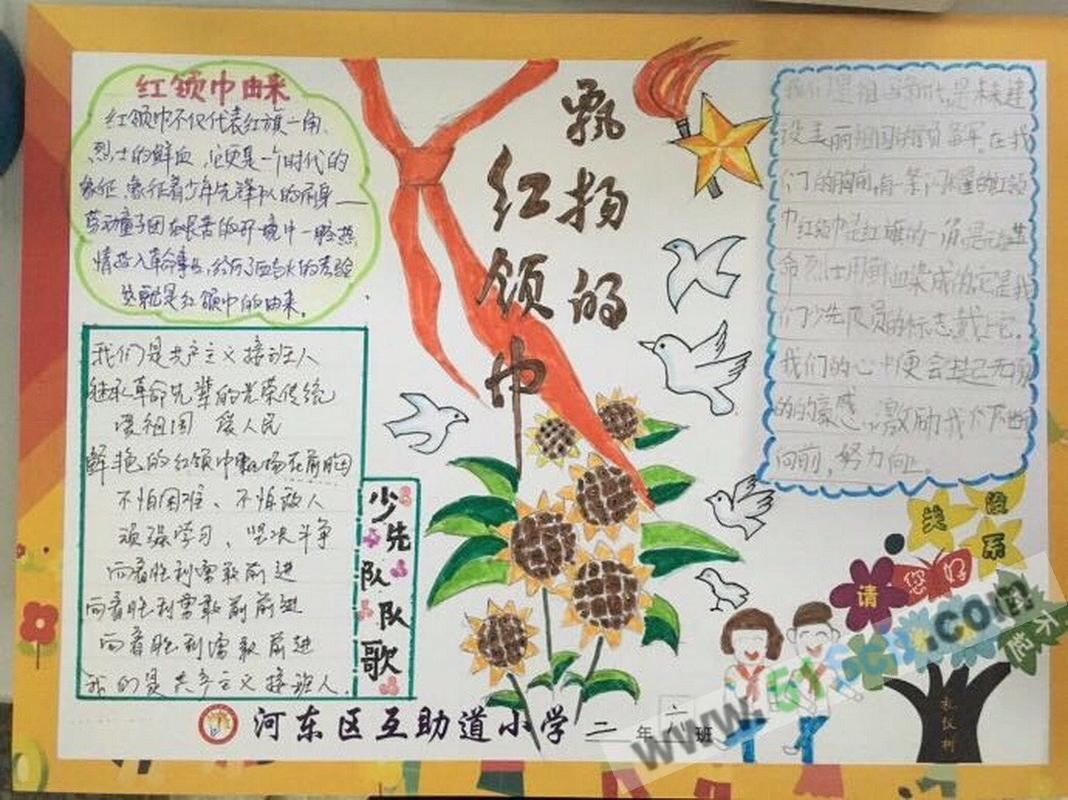 飘扬的
红领巾
红领巾由来
红领巾不仅代表红旗一角、
烈士的鲜血,它更是一个时代的
象征,象征着少年先锋队的前身——
劳动童子团在艰苦的环境中一腔热
情投入革命事业,经历了血与火的考验
这就是红领巾的由来。
少先队队歌
我们是共产主义接班人
继承革命先辈的光荣传统
爱祖国 爱人民
鲜艳的红领巾飘扬在前胸
不怕困难、不怕敌人
顽强学习、坚决斗争
向着胜利勇敢前进
向着胜利勇敢前前进
向着胜利勇敢前进
我们是共产主义接班人.
我们是祖国新一代,是未来建
设美丽祖国的 军。在我
们的胸前,有一条闪耀的红领
巾红领巾是红旗的一角,是
命烈士用鲜血染成的它是我
们少先队员的标志戴上它,
我们的心中便会
的豪感。激励我们不断
向前,努力向上。
请
您好
不起
礼仪树
河东区互助道小学 二 年 六 班
www. .com